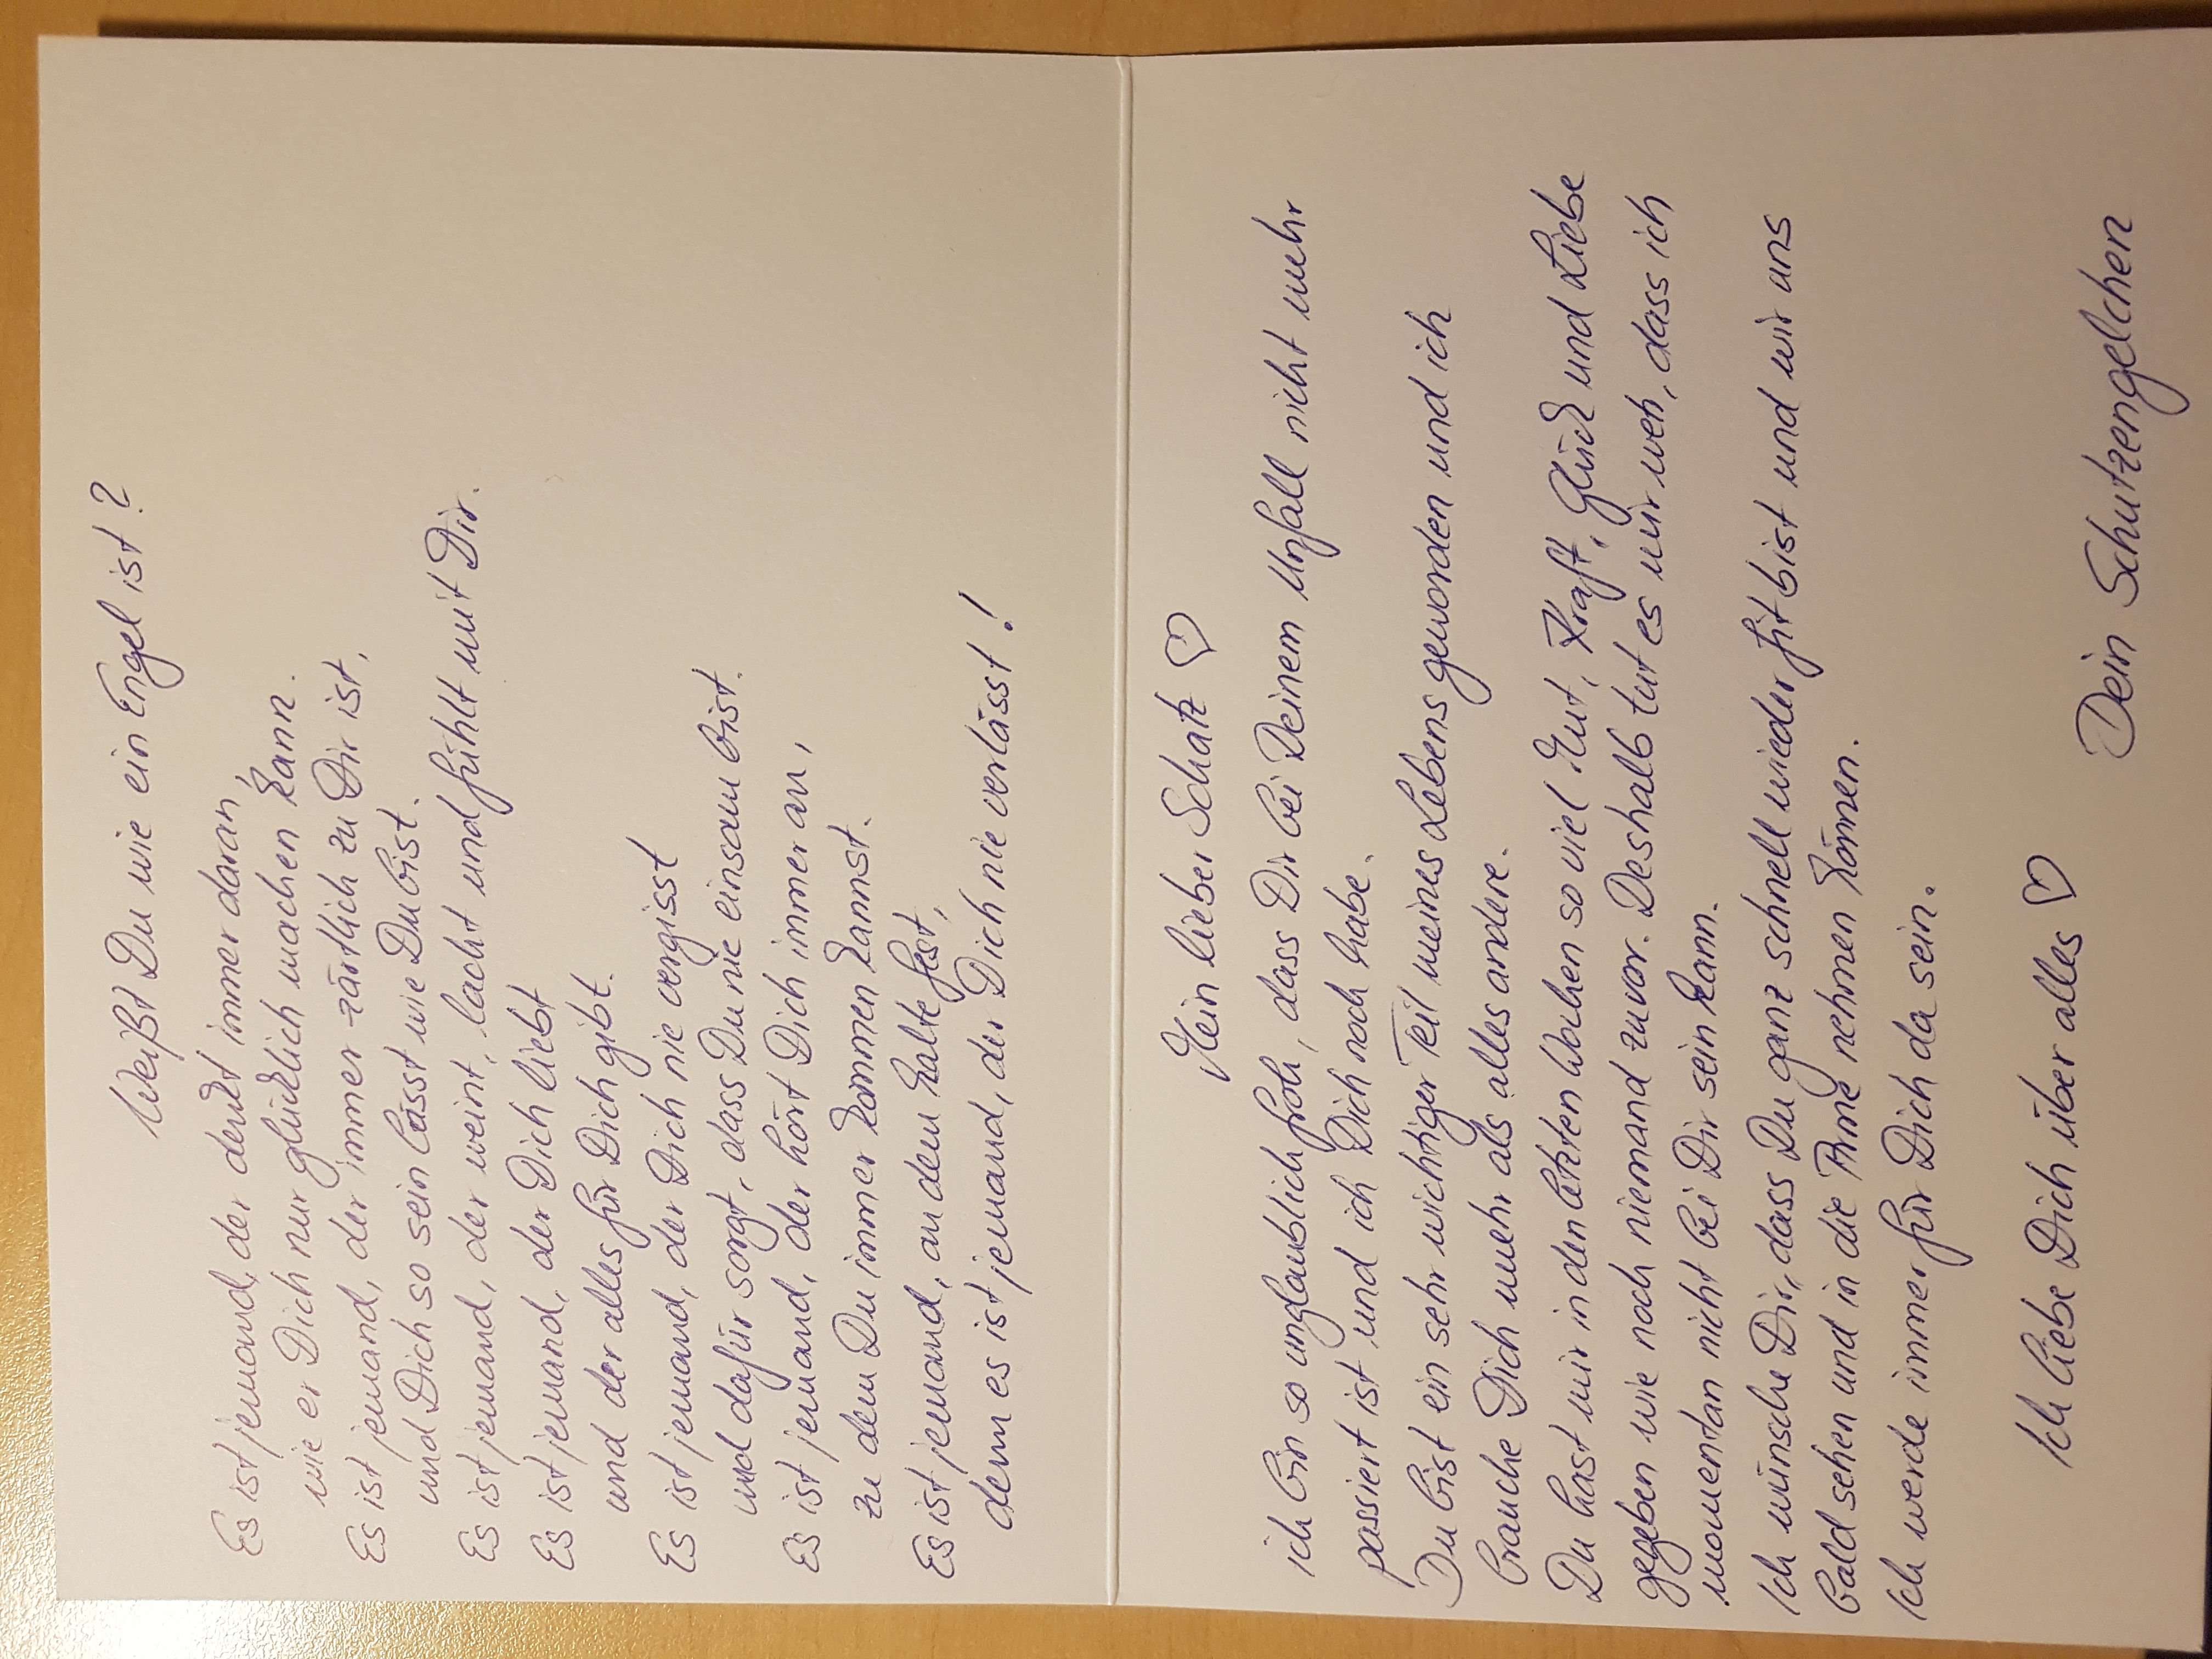 Weißt Du wie ein Engel ist?
Es ist jemand, der denkt immer daran,
wie er Dich nur glücklich machen kann.
Es ist jemand, der immer zärtlich zu Dir ist,
und Dich so sein lässt wie Du bist.
Es ist jemand, der weint, lacht und fühlt mit Dir.
Es ist jemand, der Dich liebt
und der alles für Dich gibt.
Es ist jemand, der Dich nie vergisst
und dafür sorgt, dass Du nie einsam bist.
Es ist jemand, der hört Dich immer an,
zu dem Du immer kommen kannst.
Es ist jemand, an dem halte fest,
denn es ist jemand, der Dich nie verlässt!
Mein lieber Schatz ♡
ich bin so unglaublich froh, dass Dir bei Deinem Unfall nicht mehr
passiert ist und ich Dich noch habe.
Du bist ein sehr wichtiger Teil meines Lebens geworden und ich
brauche Dich mehr als alles andere.
Du hast mir in den letzten Wochen so viel Mut, Kraft, Glück und Liebe
gegeben wie noch niemand zuvor. Deshalb tut es mir weh, dass ich
momentan nicht bei Dir sein kann.
Ich wünsche Dir, dass Du ganz schnell wieder fit bist und wir uns
bald sehen und in die Arme nehmen können.
Ich werde immer für Dich da sein.
Ich liebe Dich über alles ♡
Dein Schutzengelchen